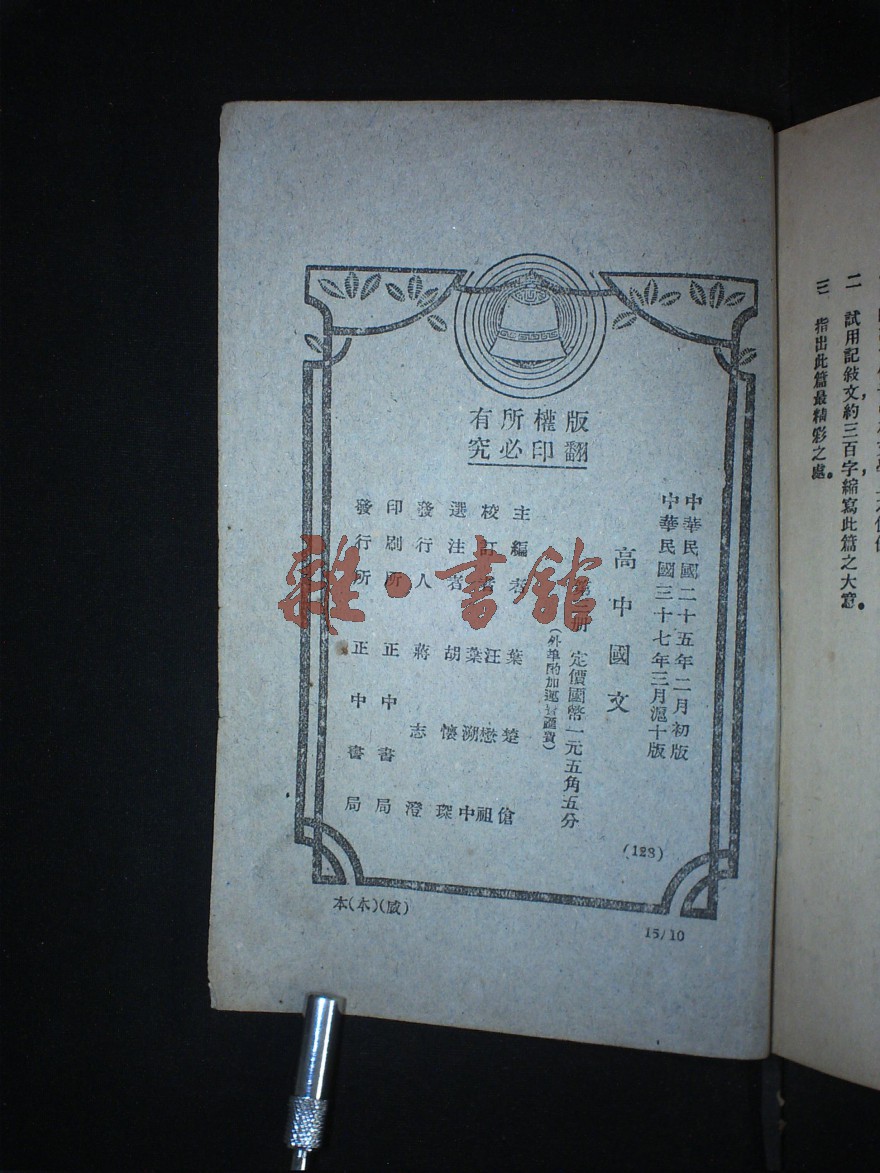 二 試用記敍文約三百字縮寫此篇之大意。
三 指出此篇最精彩之處。
版權所有
翻印必究
中華民國二十五年二月初版
中華民國三十七年三月滬十版
高中國文
第 冊 定價國幣一元五角五分
(外埠酌加運費匯費)
主編者 葉楚傖
校訂者 汪懋祖 葉溯中
選注者 胡懷琛
發行人 蔣志澄
印刷所 正中書局
發行所 正中書局
(123)
本(木)(威)
15/10
雜·書館